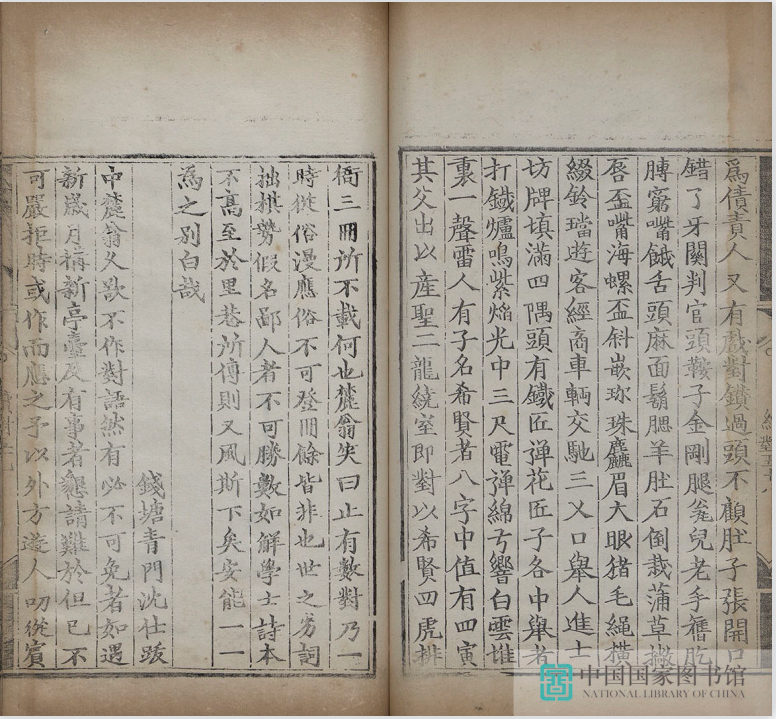 為債責人又有戲對鑽過頭不顧肚子張開口
錯了牙關判官頭鞍子金剛腿瓮兒老手
膊窮嘴餓舌頭麻面鬍腮羊肚石倒栽蒲草
唇盃嘴海螺盃斜嵌珎珠眉大眼猪毛繩橫
綴鈴璫遊客經商車輌交馳三乂口舉人進士
坊牌填滿四隅頭有鐵匠弹花匠子各中舉者
打鐵爐鳴紫焰光中三尺電弹綿弓響白雲堆
裏一聲雷人有子名希賢者八字中值有四寅
其父出以産聖二龍繞室即對以希賢四虎排
衙三冊所不載何也麓翁矢曰止有數對乃一
時從俗漫應俗不可登冊餘皆非也世之穷詞
拙棋勢假名鄙人者不可勝數如解學士詩本
不高至於里巷所傳則又風斯下矣安能一一
為之別白哉
錢塘青門沈仕跋
中麓翁久欲不作對語然有必不可免者如遇
新歲月稱新亭臺及有事者懇請難於但已不
可嚴拒時或作而應之予以外方遊人叨從賓
中国国家图书馆
NATIONAL LIBRARY OF CHINA